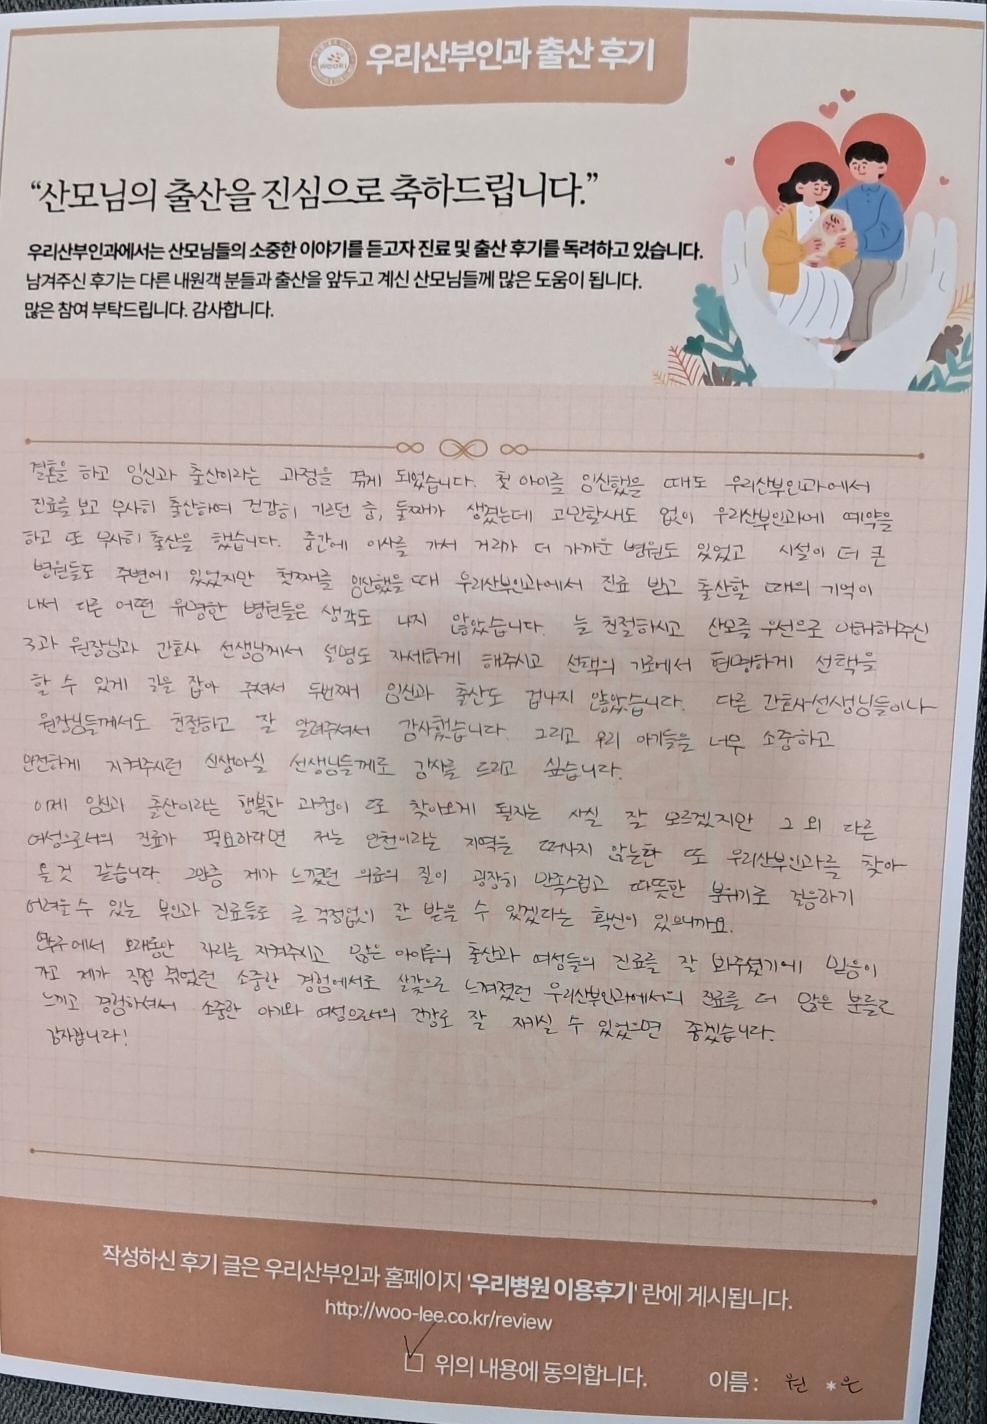 우리산부인과 출산 후기
"산모님의 출산을 진심으로 축하드립니다."
우리산부인과에서는 산모님들의 소중한 이야기를 듣고자 진료 및 출산 후기를 독려하고 있습니다.
남겨주신 후기는 다른 내원객 분들과 출산을 앞두고 계신 산모님들께 많은 도움이 됩니다.
많은 참여 부탁드립니다. 감사합니다.
결혼을 하고 임신과 출산이라는 과정을 겪게 되었습니다. 첫 아이를 임신했을 때도 우리산부인과에서
진료를 보고 무사히 출산하여 건강히 기르던 중, 둘째가 생겼는데 고난할새도 없이 우리산부인과에 예약을
하고 또 무사히 출산을 했습니다. 중간에 이사를 가서 거리가 더 가까운 병원도 있었고 시설이 더 큰
병원들도 주변에 있었지만 첫째를 임신했을 때 우리산부인과에서 진료 받고 출산할 때의 기억이
나서 다른 어떤 유명한 병원들은 생각도 나지 않았습니다. 늘 친절하시고 산모를 우선으로 이해해주신
3과 원장님과 간호사 선생님께서 설명도 자세하게 해주시고 선택의 기로에서 현명하게 선택을
할 수 있게 길을 잡아 주셔서 두번째 임신과 출산도 겁나지 않았습니다. 다른 간호사선생님들이나
원장님들께서도 친절하고 잘 알려주셔서 감사했습니다. 그리고 우리 아기들을 너무 소중하고
안전하게 지켜주시던 신생아실 선생님들께도 감사를 드리고 싶습니다.
이제 임신과 출산이라는 행복한 과정이 또 찾아오게 될지는 사실 잘 모르겠지만 그 외 다른
여성으로서의 진료가 필요하다면 저는 인천이라는 지역을 떠나지 않는한 또 우리산부인과를 찾아
올것 같습니다. 그만큼 제가 느꼈던 의료의 질이 굉장히 만족스럽고 따뜻한 분위기로 걱정하기
어려울 수 있는 부인과 진료들도 큰 걱정없이 잘 받을 수 있겠다는 확신이 있으니까요.
연수구에서 오래동안 자리를 지켜주시고 많은 아이들의 출산과 여성들의 진료를 잘 봐주셨기에 믿음이
가고 제가 직접 겪었던 소중한 경험에서도 살갗으로 느껴졌던 우리산부인과에서의 진료를 더 많은 분들도
느끼고 경험하셔서 소중한 아기와 여성으로서의 건강도 잘 챙기실 수 있었으면 좋겠습니다.
감사합니다!
작성하신 후기 글은 우리산부인과 홈페이지 '우리병원 이용후기' 란에 게시됩니다.
http://woo-lee.co.kr/review
위의 내용에 동의합니다. 이름 : 원 * 은